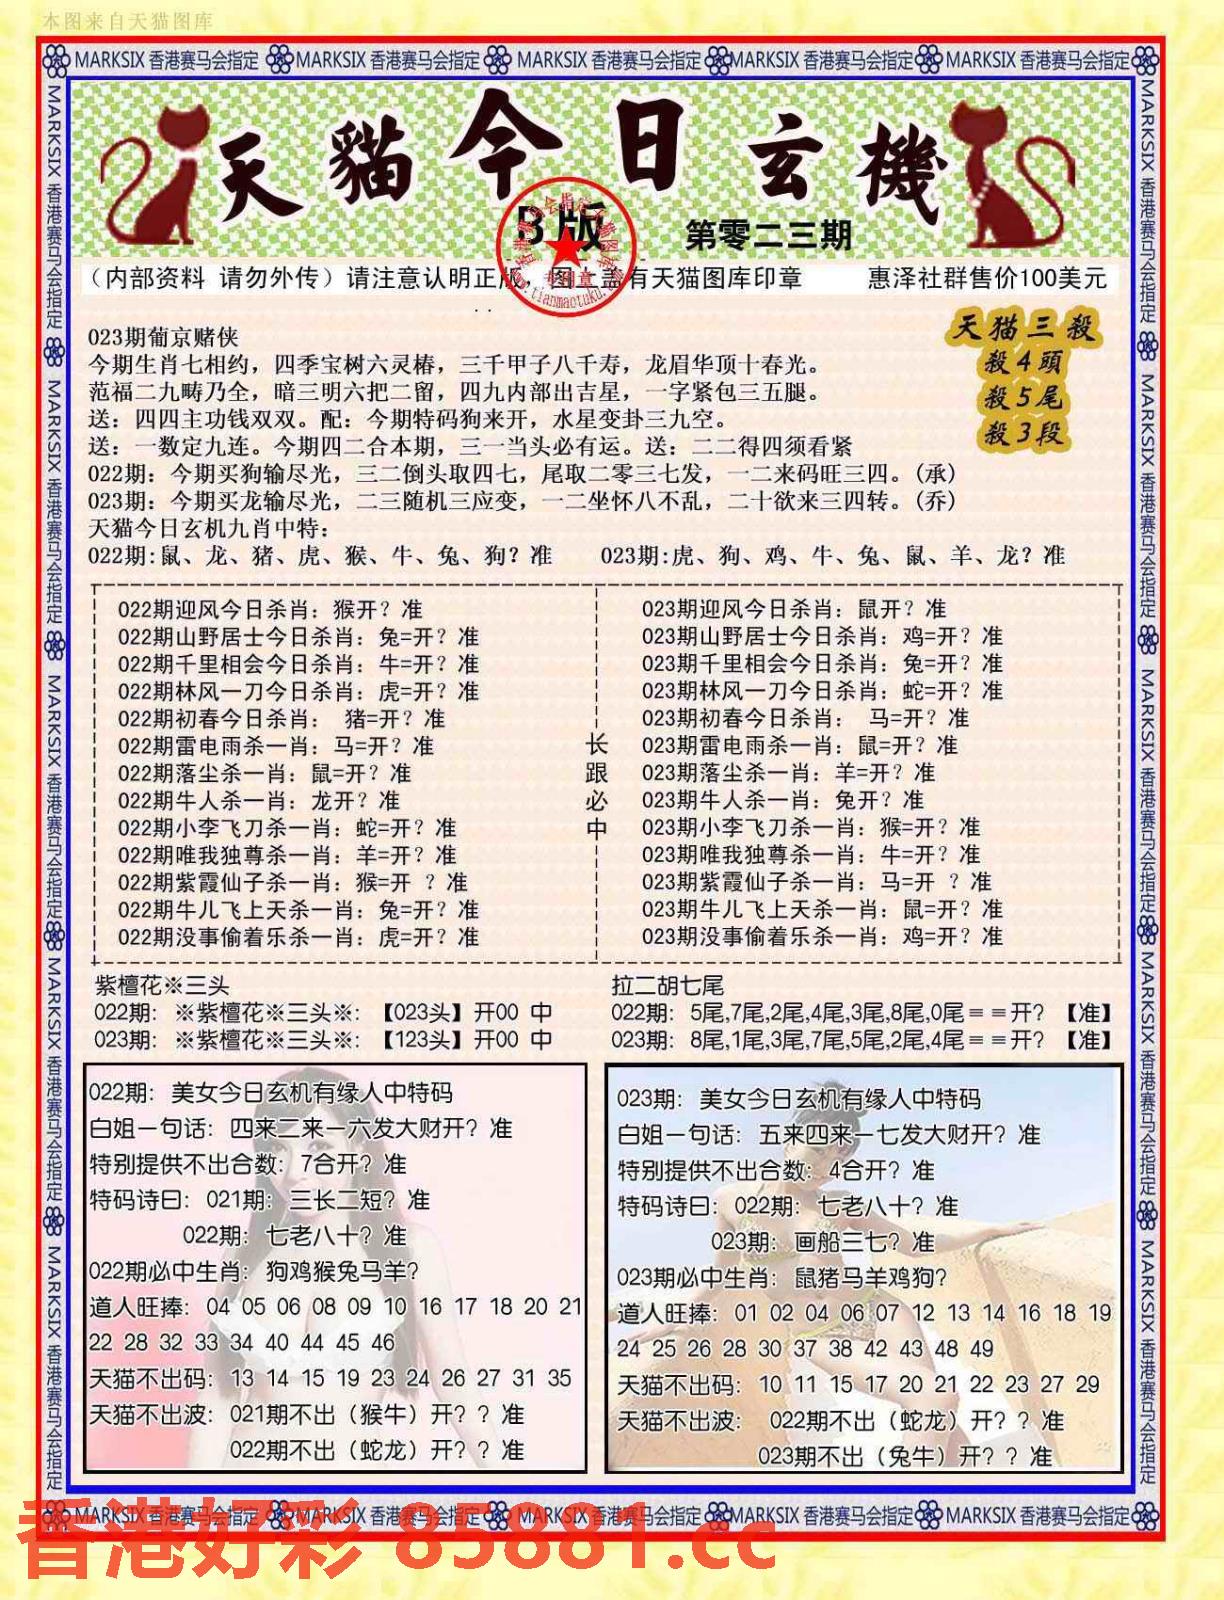 本图来自天猫图库
MARKSIX 香港赛马会指定 MARKSIX 香港赛马会指定 MARKSIX 香港赛马会指定 MARKSIX 香港赛马会指定 MARKSIX 香港赛马会指定
天貓今日玄機
B版
第零二三期
（内部资料 请勿外传）请注意认明正版，图上盖有天猫图库印章 惠泽社群售价100美元
天猫三殺
殺4頭
殺5尾
殺3段
023期葡京赌侠
今期生肖七相约，四季宝树六灵椿，三千甲子八千寿，龙眉华顶十春光。
范福二九畴乃全，暗三明六把二留，四九内部出吉星，一字紧包三五腿。
送：四四主功钱双双。配：今期特码狗来开，水星变卦三九空。
送：一数定九连。今期四二合本期，三一当头必有运。送：二二得四须看紧
022期：今期买狗输尽光，三二倒头取四七，尾取二零三七发，一二来码旺三四。(承)
023期：今期买龙输尽光，二三随机三应变，一二坐怀八不乱，二十欲来三四转。(乔)
天猫今日玄机九肖中特：
022期:鼠、龙、猪、虎、猴、牛、兔、狗？准 023期:虎、狗、鸡、牛、兔、鼠、羊、龙？准
022期迎风今日杀肖：猴开？准
022期山野居士今日杀肖：兔=开？准
022期千里相会今日杀肖：牛=开？准
022期林风一刀今日杀肖：虎=开？准
022期初春今日杀肖： 猪=开？准
022期雷电雨杀一肖：马=开？准
022期落尘杀一肖：鼠=开？准
022期牛人杀一肖：龙开？准
022期小李飞刀杀一肖：蛇=开？准
022期唯我独尊杀一肖：羊=开？准
022期紫霞仙子杀一肖：猴=开 ？准
022期牛儿飞上天杀一肖：兔=开？准
022期没事偷着乐杀一肖：虎=开？准
长跟必中
023期迎风今日杀肖：鼠开？准
023期山野居士今日杀肖：鸡=开？准
023期千里相会今日杀肖：兔=开？准
023期林风一刀今日杀肖：蛇=开？准
023期初春今日杀肖： 马=开？准
023期雷电雨杀一肖：鼠=开？准
023期落尘杀一肖：羊=开？准
023期牛人杀一肖：兔开？准
023期小李飞刀杀一肖：猴=开？准
023期唯我独尊杀一肖：牛=开？准
023期紫霞仙子杀一肖：马=开 ？准
023期牛儿飞上天杀一肖：鼠=开？准
023期没事偷着乐杀一肖：鸡=开？准
紫檀花※三头
022期：※紫檀花※三头※：【023头】开00 中
023期：※紫檀花※三头※：【123头】开00 中
拉二胡七尾
022期：5尾,7尾,2尾,4尾,3尾,8尾,0尾＝＝开？【准】
023期：8尾,1尾,3尾,7尾,5尾,2尾,4尾＝＝开？【准】
022期：美女今日玄机有缘人中特码
白姐一句话：四来二来一六发大财开？准
特别提供不出合数：7合开？准
特码诗曰：021期：三长二短？准
022期：七老八十？准
022期必中生肖：狗鸡猴兔马羊？
道人旺捧：04 05 06 08 09 10 16 17 18 20 21
22 28 32 33 34 40 44 45 46
天猫不出码：13 14 15 19 23 24 26 27 31 35
天猫不出波：021期不出（猴牛）开？？准
022期不出（蛇龙）开？？准
023期：美女今日玄机有缘人中特码
白姐一句话：五来四来一七发大财开？准
特别提供不出合数：4合开？准
特码诗曰：022期：七老八十？准
023期：画船三七？准
023期必中生肖：鼠猪马羊鸡狗？
道人旺捧：01 02 04 06 07 12 13 14 16 18 19
24 25 26 28 30 37 38 42 43 48 49
天猫不出码：10 11 15 17 20 21 22 23 27 29
天猫不出波： 022期不出（蛇龙）开？？准
023期不出（兔牛）开？？准
MARKSIX 香港赛马会指定 MARKSIX 香港赛马会指定 MARKSIX 香港赛马会指定 MARKSIX 香港赛马会指定 MARKSIX 香港赛马会指定
香港好彩 85881.cc